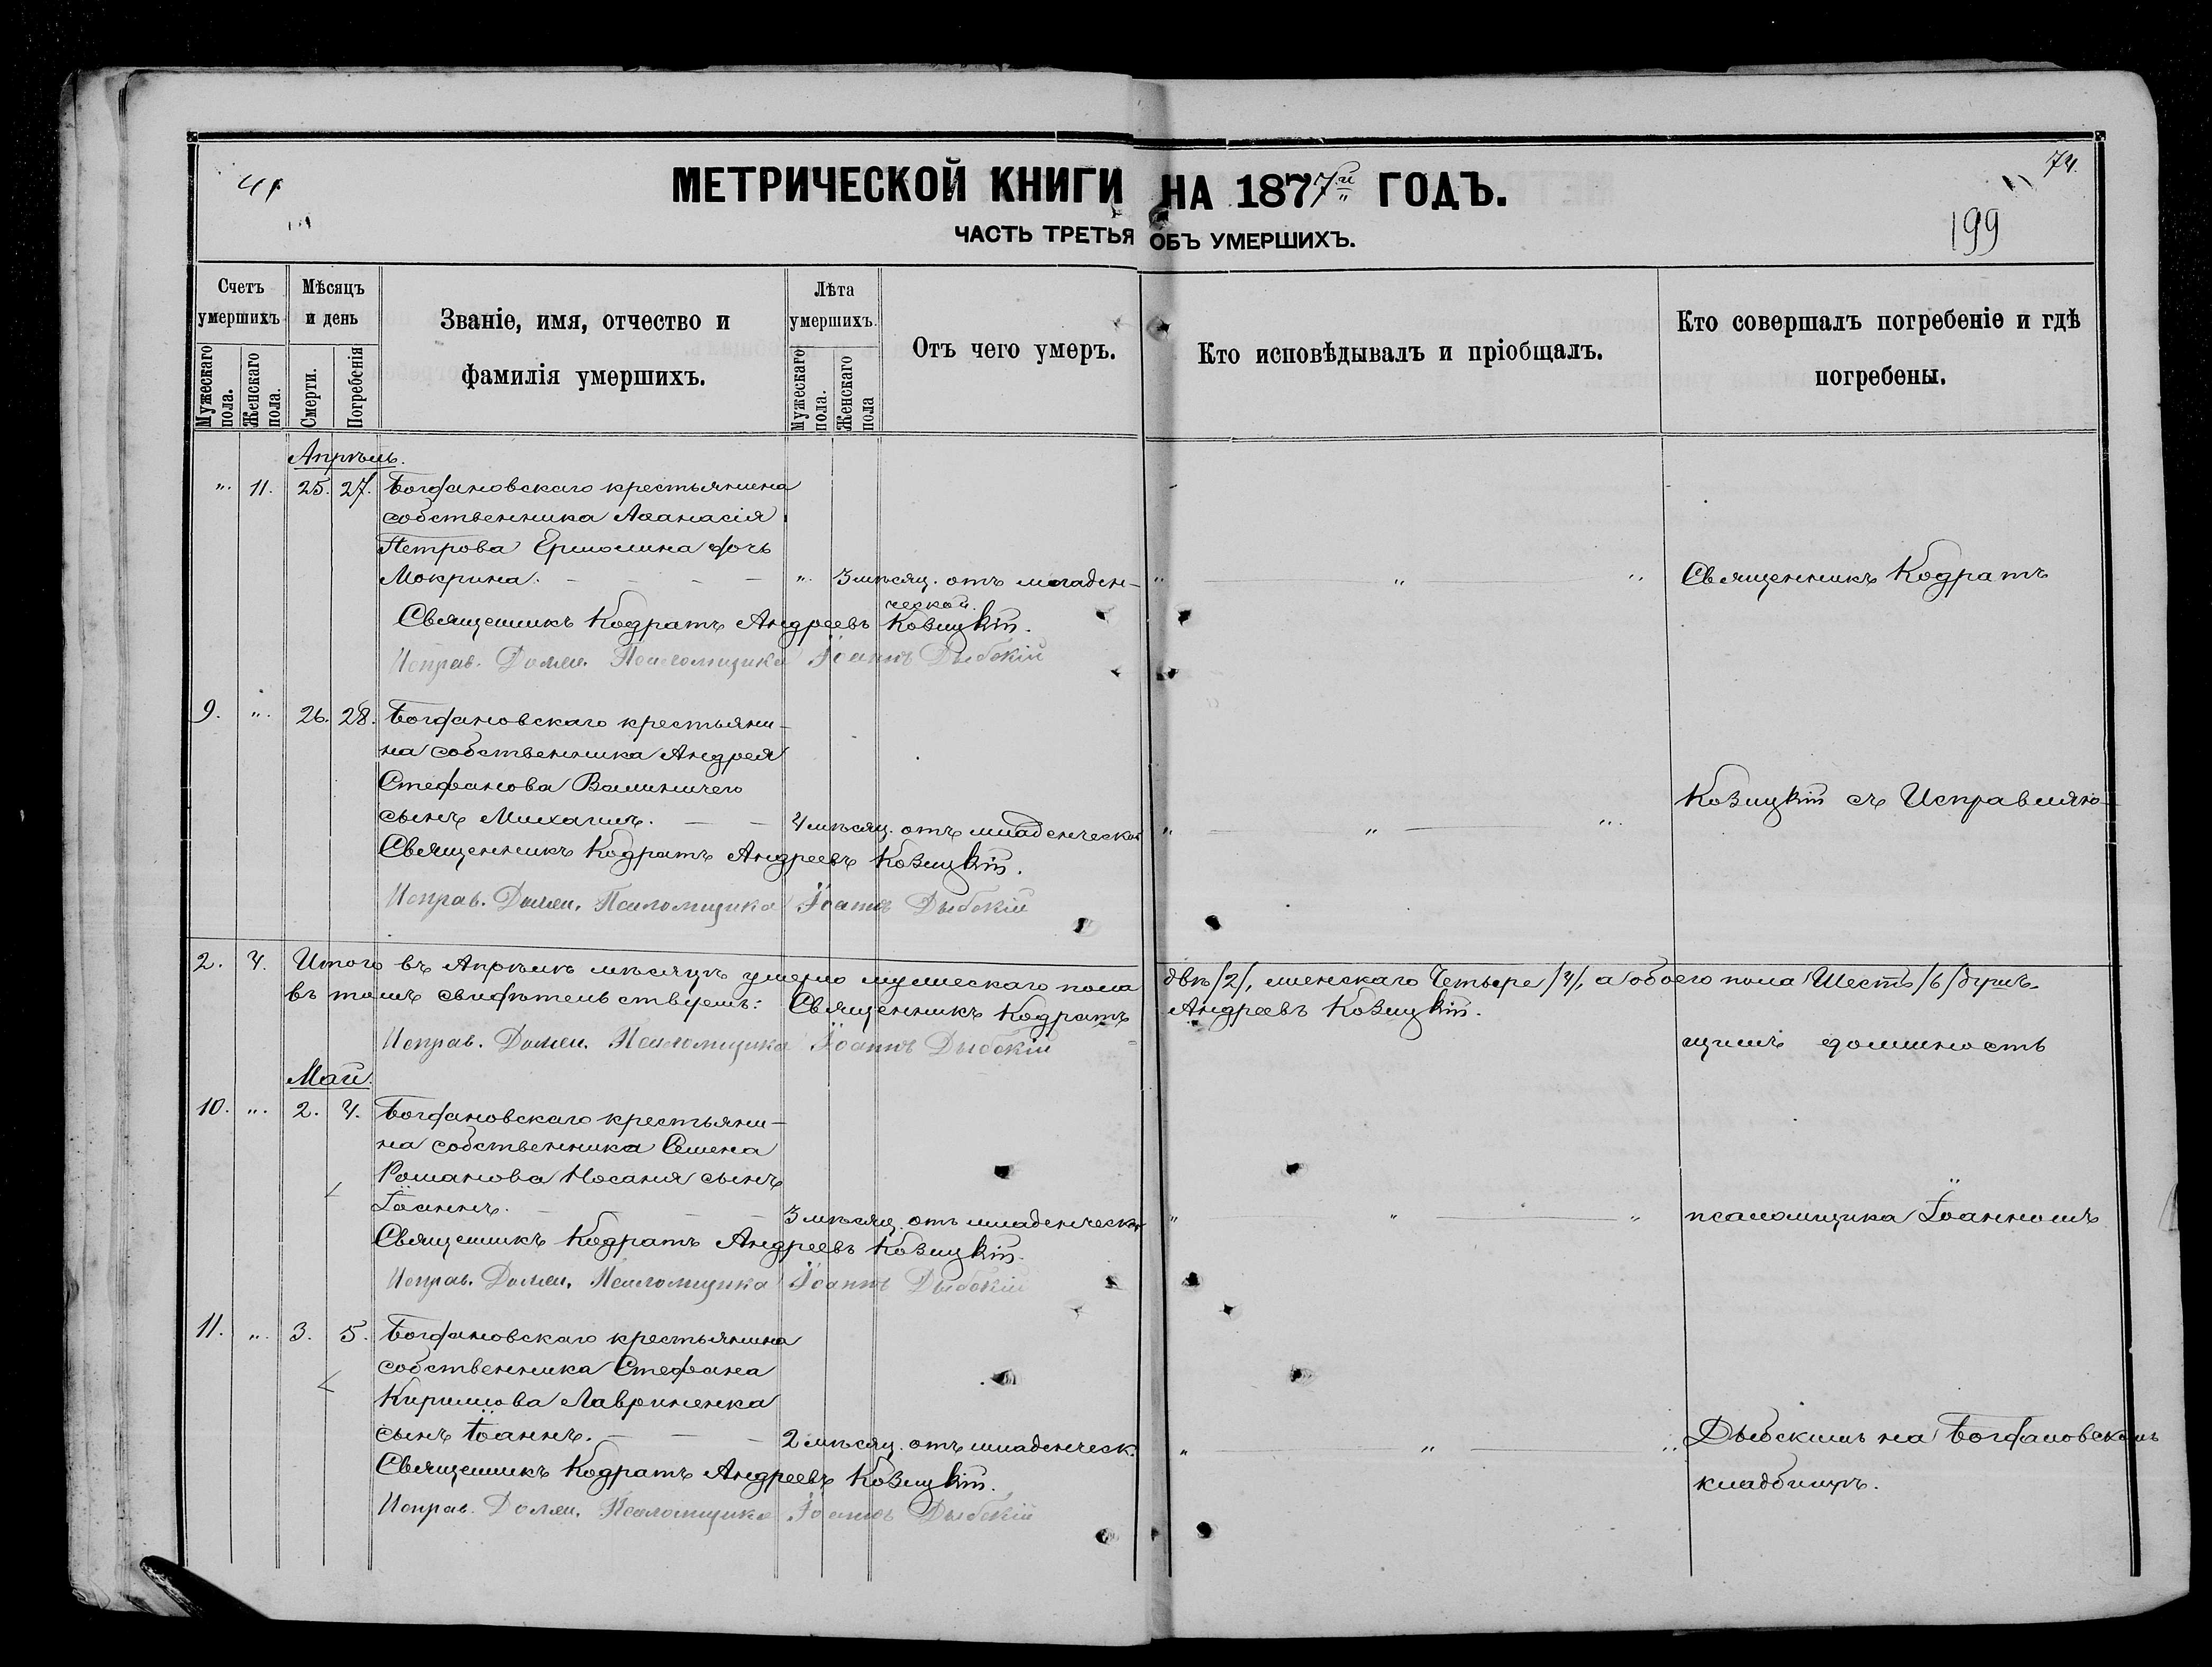 41
74.
199
МЕТРИЧЕСКОЙ КНИГИ НА 1877й ГОДЪ.
ЧАСТЬ ТРЕТЬЯ ОБЪ УМЕРШИХЪ.
Счетъ умершихъ
Мужескаго пола.
Женскаго пола.
Мѣсяцъ и день
Смерти.
Погребенія
Званіе, имя, отчество и
фамилія умершихъ.
Лѣта умершихъ.
Мужескаго пола.
Женскаго пола
Отъ чего умеръ.
Кто исповѣдывалъ и пріобщалъ.
Кто совершалъ погребеніе и гдѣ
погребены.
Апрѣль.
". 11. 25. 27. Богдановскаго крестьянина
собственника Аѳанасія
Петрова Ермолина дочь
Мокрина. — — — — ". 3 мѣсяц. отъ младен-
ческой.
" " " Священникъ Кодратъ
Священникъ Кодратъ Андреевъ Козицкій.
Исправ. Должн. Псаломщика Іоаннъ Дыбскій
9. ". 26. 28. Богдановскаго крестьяни-
на собственника Андрея
Стефанова
сынъ Михаилъ. — — 4 мѣсяц. отъ младенческой
" — " — ".
Козицкій съ Исправляю-
Священникъ Кодратъ Андреевъ Козицкій.
Исправ. Должн. Псаломщика Іоаннъ Дыбскій
2. 4. Итого въ Апрѣлѣ мѣсяцѣ умерло мужескаго пола двѣ /2/, женскаго Четыре /4/, а обоего пола Шесть /6/ душъ.
въ томъ свидѣтельствуемъ: Священникъ Кодратъ Андреевъ Козицкій.
Исправ. Должн. Псаломщика Іоаннъ Дыбскій
щимъ должность
Май.
10. ". 2. 4. Богдановскаго крестьяни-
на собственника Семена
Романова Носаня сынъ
Іоаннъ. — — — 3 мѣсяц. отъ младенческ
" " — " псаломщика Іоанномъ
Священникъ Кодратъ Андреевъ Козицкій.
Исправ. Должн. Псаломщика Іоаннъ Дыбскій
11. ". 3. 5. Богдановскаго крестьянина
собственника Стефана
Кирилова Лавриненка
сынъ Іоаннъ. — — — 2 мѣсяц. отъ младенческ.
" — " — " Дыбскимъ на Богдановскомъ
кладбищѣ.
Священникъ Кодратъ Андреевъ Козицкій.
Исправ. Должн. Псаломщика Іоаннъ Дыбскій